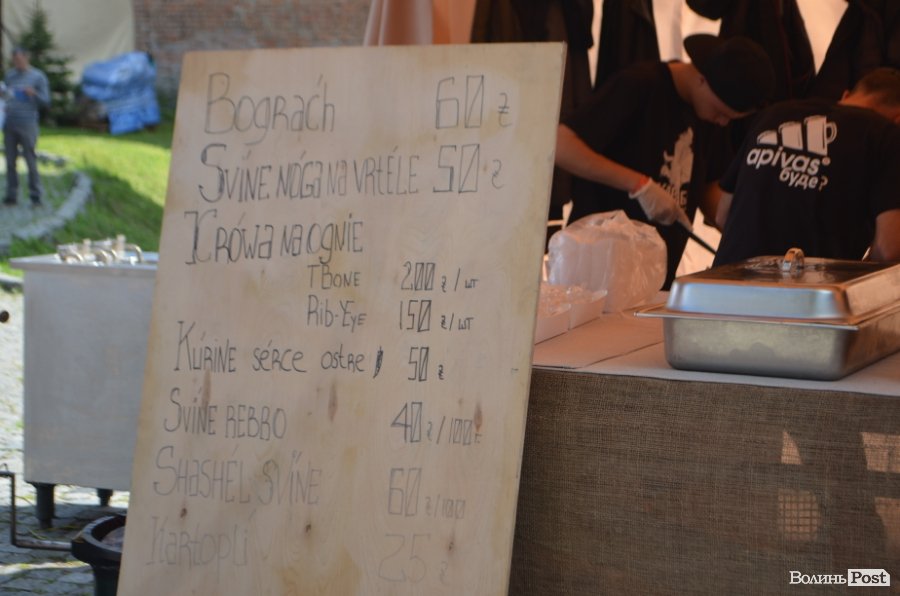 Bograćh 60 ₴
Svíne nóga na vrtéle 50 ₴
Krówa na ognie
TBone 200 ₴/шт
Rib-Eye 150 ₴/шт
Kúrine sérce ostre 50 ₴
Svíne rebbo 40 ₴/100г
Shashél svíne 60 ₴/100
Kartoplí 25
apivas®
буде?
ВолиньPost